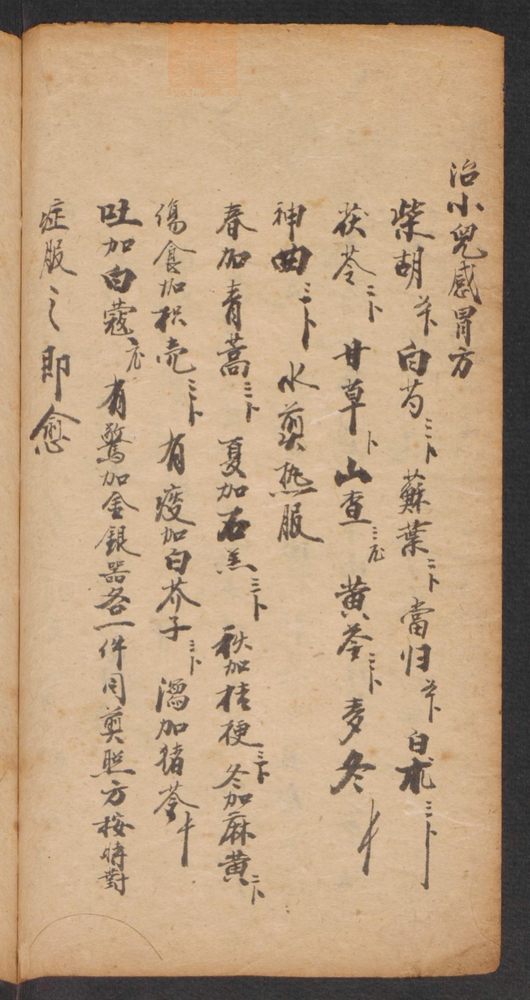 治小兒感冒方
柴胡 白芍三卜 蘇葉二卜 當归 白朮三卜
茯苓二卜 甘草卜 山查三 黄芩三卜 麦冬
神曲三卜 水煎热服
春加青蒿三卜 夏加石羔三卜 秋加桔梗三卜 冬加麻黄二卜
傷食加枳壳三卜 有痰加白芥子三卜 瀉加猪苓
吐加白蔻 有驚加金銀器各一件同煎照方按時對
症服之即愈